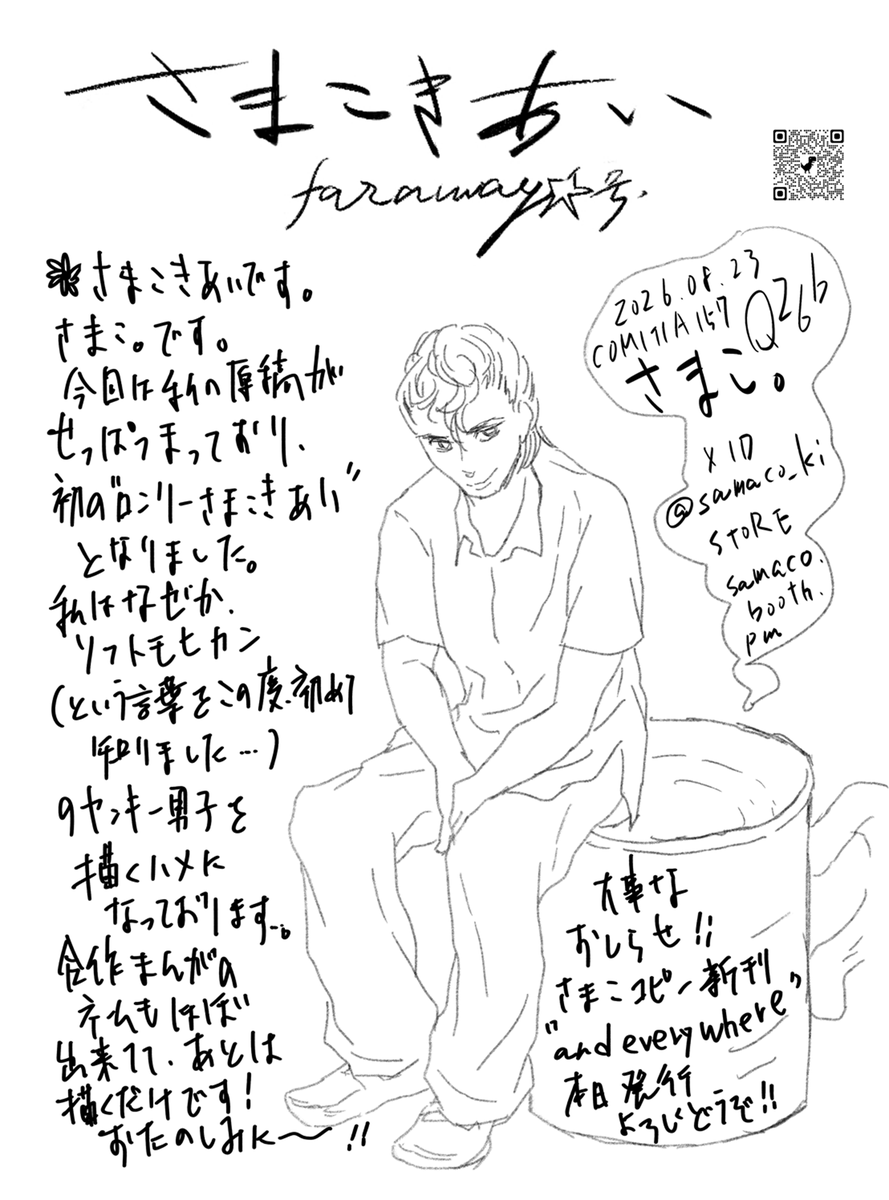 さまこきあい
faraway☆号.
さまこきあいです。
さまこ。です。
今回は私の原稿が
せっぱつまっており、
初の"ロンリーさまこきあい"
となりました。
私はなぜか、
ソフトモヒカン
(という言葉をこの度、初めて
知りました…)
のヤンキー男子を
描くハメに
なっております…。
合作まんがの
ネームもほぼ
出来てて、あとは
描くだけです!
おたのしみに〜!!
2026.08.23
COMITIA157
Q26b
さまこ。
X ID
@samaco_ki
STORE
samaco.
booth.
pm
大事な
おしらせ!!
さまこコピー新刊
"and everywhere"
本日発行
よろしどうぞ!!